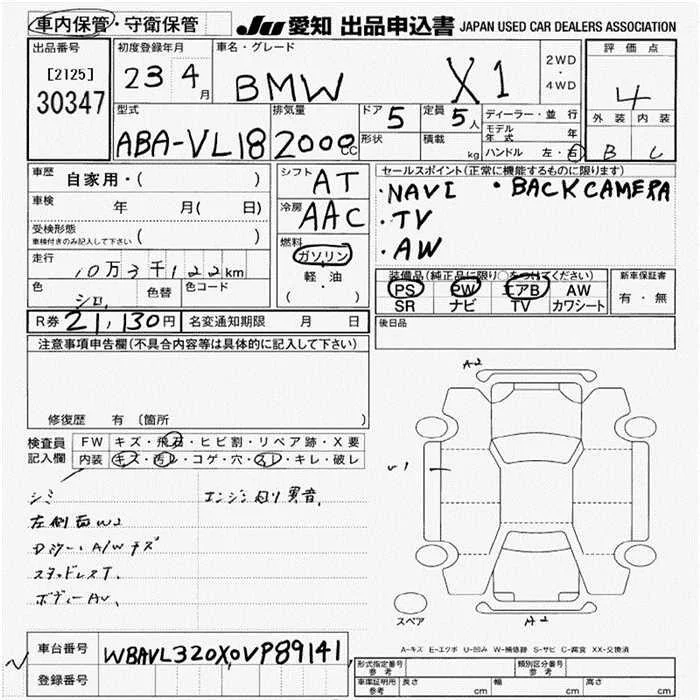 車内保管・守衛保管
JU 愛知 出品申込書 JAPAN USED CAR DEALERS ASSOCIATION
出品番号
[2125]
30347
初度登録年月
23 4月
車名・グレード
BMW X1
2WD
・
4WD
評価点
4
外装 内装
B C
型式
ABA-VL18
排気量
2000cc
ドア 5
形状
定員 5人
積載 kg
ディーラー・並行
モデル年式 年
ハンドル 左・右
車歴 自家用・( )
車検 年 月(日)
受検形態
車検付きのみ記入して下さい ( )
走行
10万3千122km
色 色替 色コード
シロ
シフト AT
冷房 AAC
燃料
ガソリン
軽・油
( )
セールスポイント(正常に機能するものに限ります)
・NAVI ・BACK CAMERA
・TV
・AW
装備品(純正品に限り○をつけてください)
PS PW エアB AW
SR ナビ TV カワシート
新車保証書
有・無
後日品
R券 21,130円 名変通知期限 月 日
注意事項申告欄(不具合内容等は具体的に記入して下さい)
修復歴 有〔箇所 〕
検査員記入欄
FW キズ・飛石・ヒビ割・リペア跡・X要
内装 キズ・汚レ・コゲ・穴・スレ・キレ・破レ
シミ
エンジン回り異音
左側面W2
A/Wキズ
スタッドレスT.
ボディーAU、
A2
U1
A2
スペア
A-キズ E-エクボ U-凹み W-補修跡 S-サビ C-腐食 XX-交換済
車台番号 WBAVL320X0VP89141
登録番号
形式指定番号 参考
類別区分番号 参考
車庫証明用 参考 長さ cm 幅 cm 高さ cm